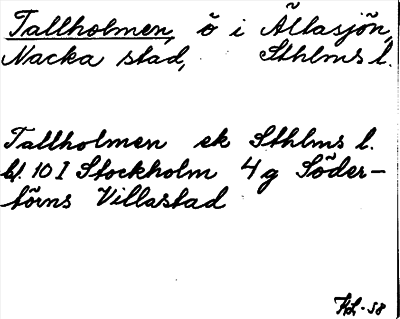 Tallholmen, ö i Ältasjön,
Nacka stad, Sthlms l.
Tallholmen ek Sthlms l.
bl. 10 I Stockholm 4g Söder-
törns Villastad
HL-58